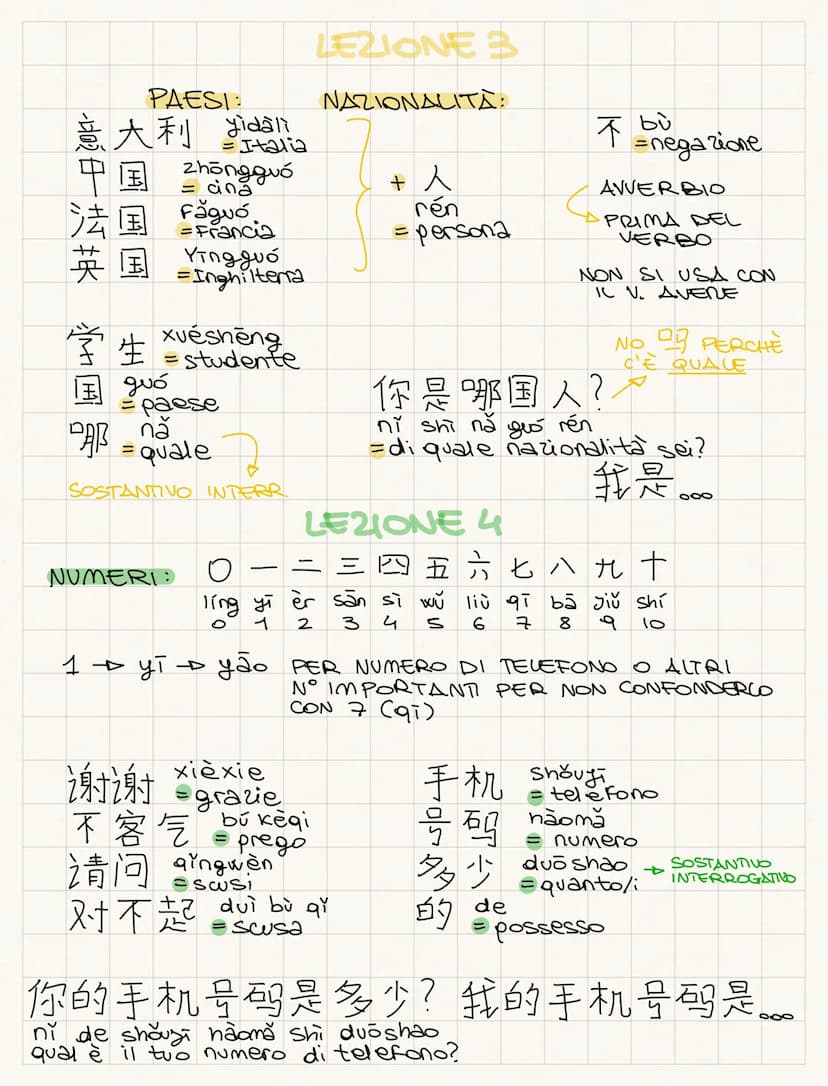 LEZIONE 3
PAESI:
意大利 yìdàlì
= Italia
中国 zhōngguó
= cina
法国 Fǎguó
= Francia
英国 Yīngguó
= Inghilterra
NAZIONALITÀ:
+ 人
rén
= persona
不 bù
= negazione
AVVERBIO
PRIMA DEL
VERBO
NON SI USA CON
IL V. AVERE
学生 xuéshēng
= studente
国 guó
= paese
哪 nǎ
= quale
SOSTANTIVO INTERR.
NO 吗 PERCHÈ
C'È QUALE
你是哪国人?
nǐ shì nǎ guó rén
= di quale nazionalità sei?
我是...
LEZIONE 4
NUMERI: 〇 一 二 三 四 五 六 七 八 九 十
líng yī èr sān sì wǔ liù qī bā jiǔ shí
0 1 2 3 4 5 6 7 8 9 10
1 → yī → yāo PER NUMERO DI TELEFONO O ALTRI
N° IMPORTANTI PER NON CONFONDERLO
CON 7 (qī)
谢谢 xièxie
= grazie
不客气 bú kèqi
= prego
请问 qǐngwèn
= scusi
对不起 duì bù qǐ
= scusa
手机 shǒujī
= telefono
号码 hàomǎ
= numero
多少 duōshao → SOSTANTIVO
= quanto/i INTERROGATIVO
的 de
= possesso
你的手机号码是多少? 我的手机号码是...
nǐ de shǒujī hàomǎ shì duōshao
qual è il tuo numero di telefono?